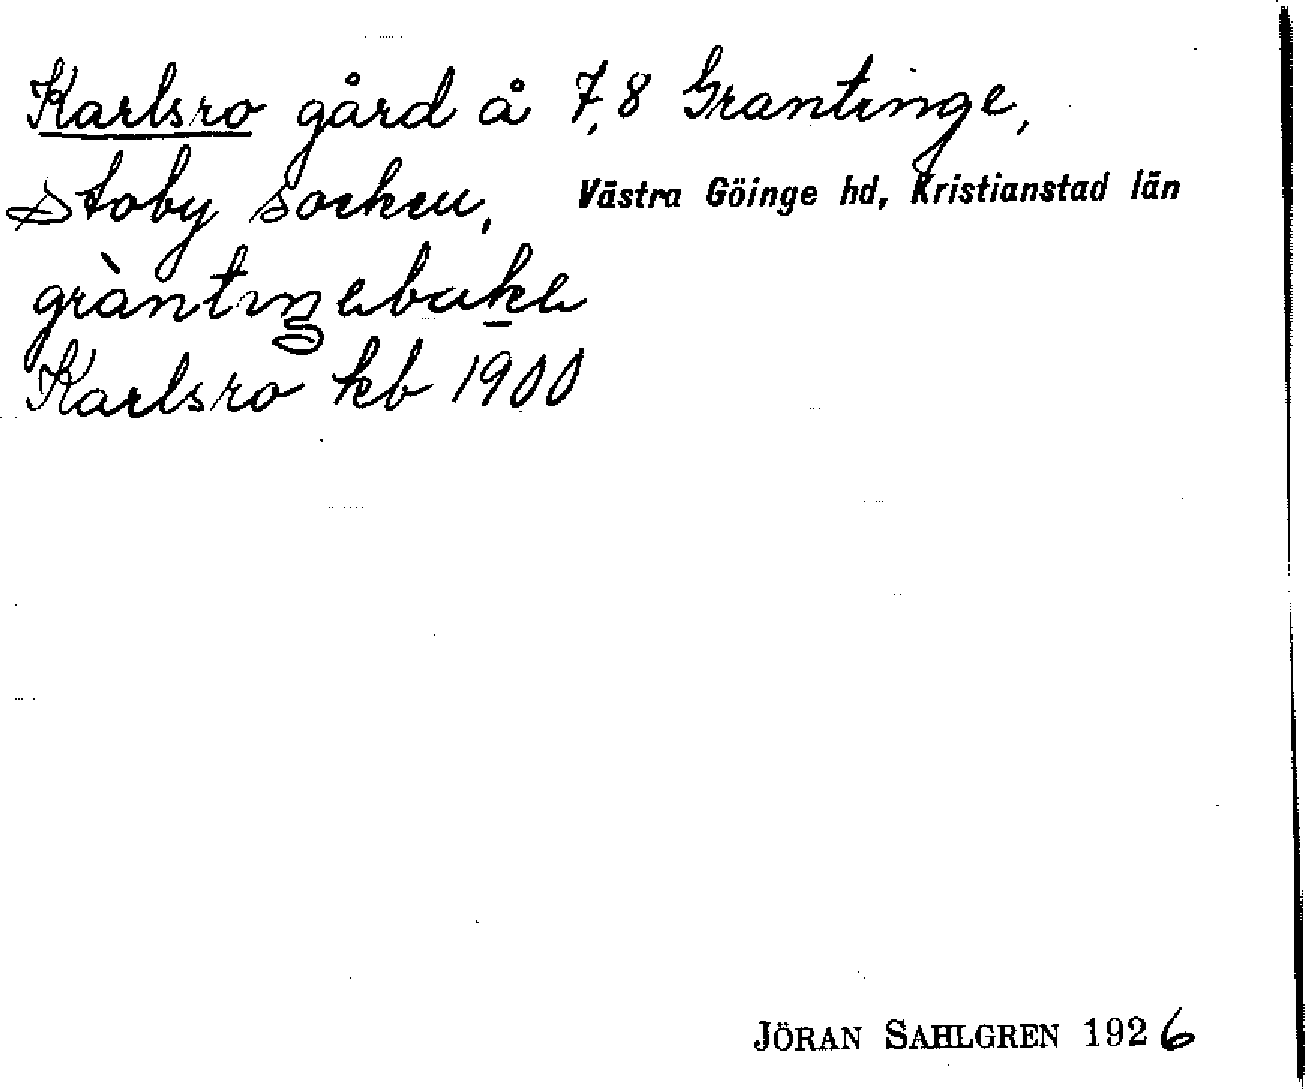 Karlsro gård å 7,8 Grantinge,
Stoby socken, Västra Göinge hd, Kristianstad län
gràntıŋabaka
Karlsro kb 1900
JÖRAN SAHLGREN 1926